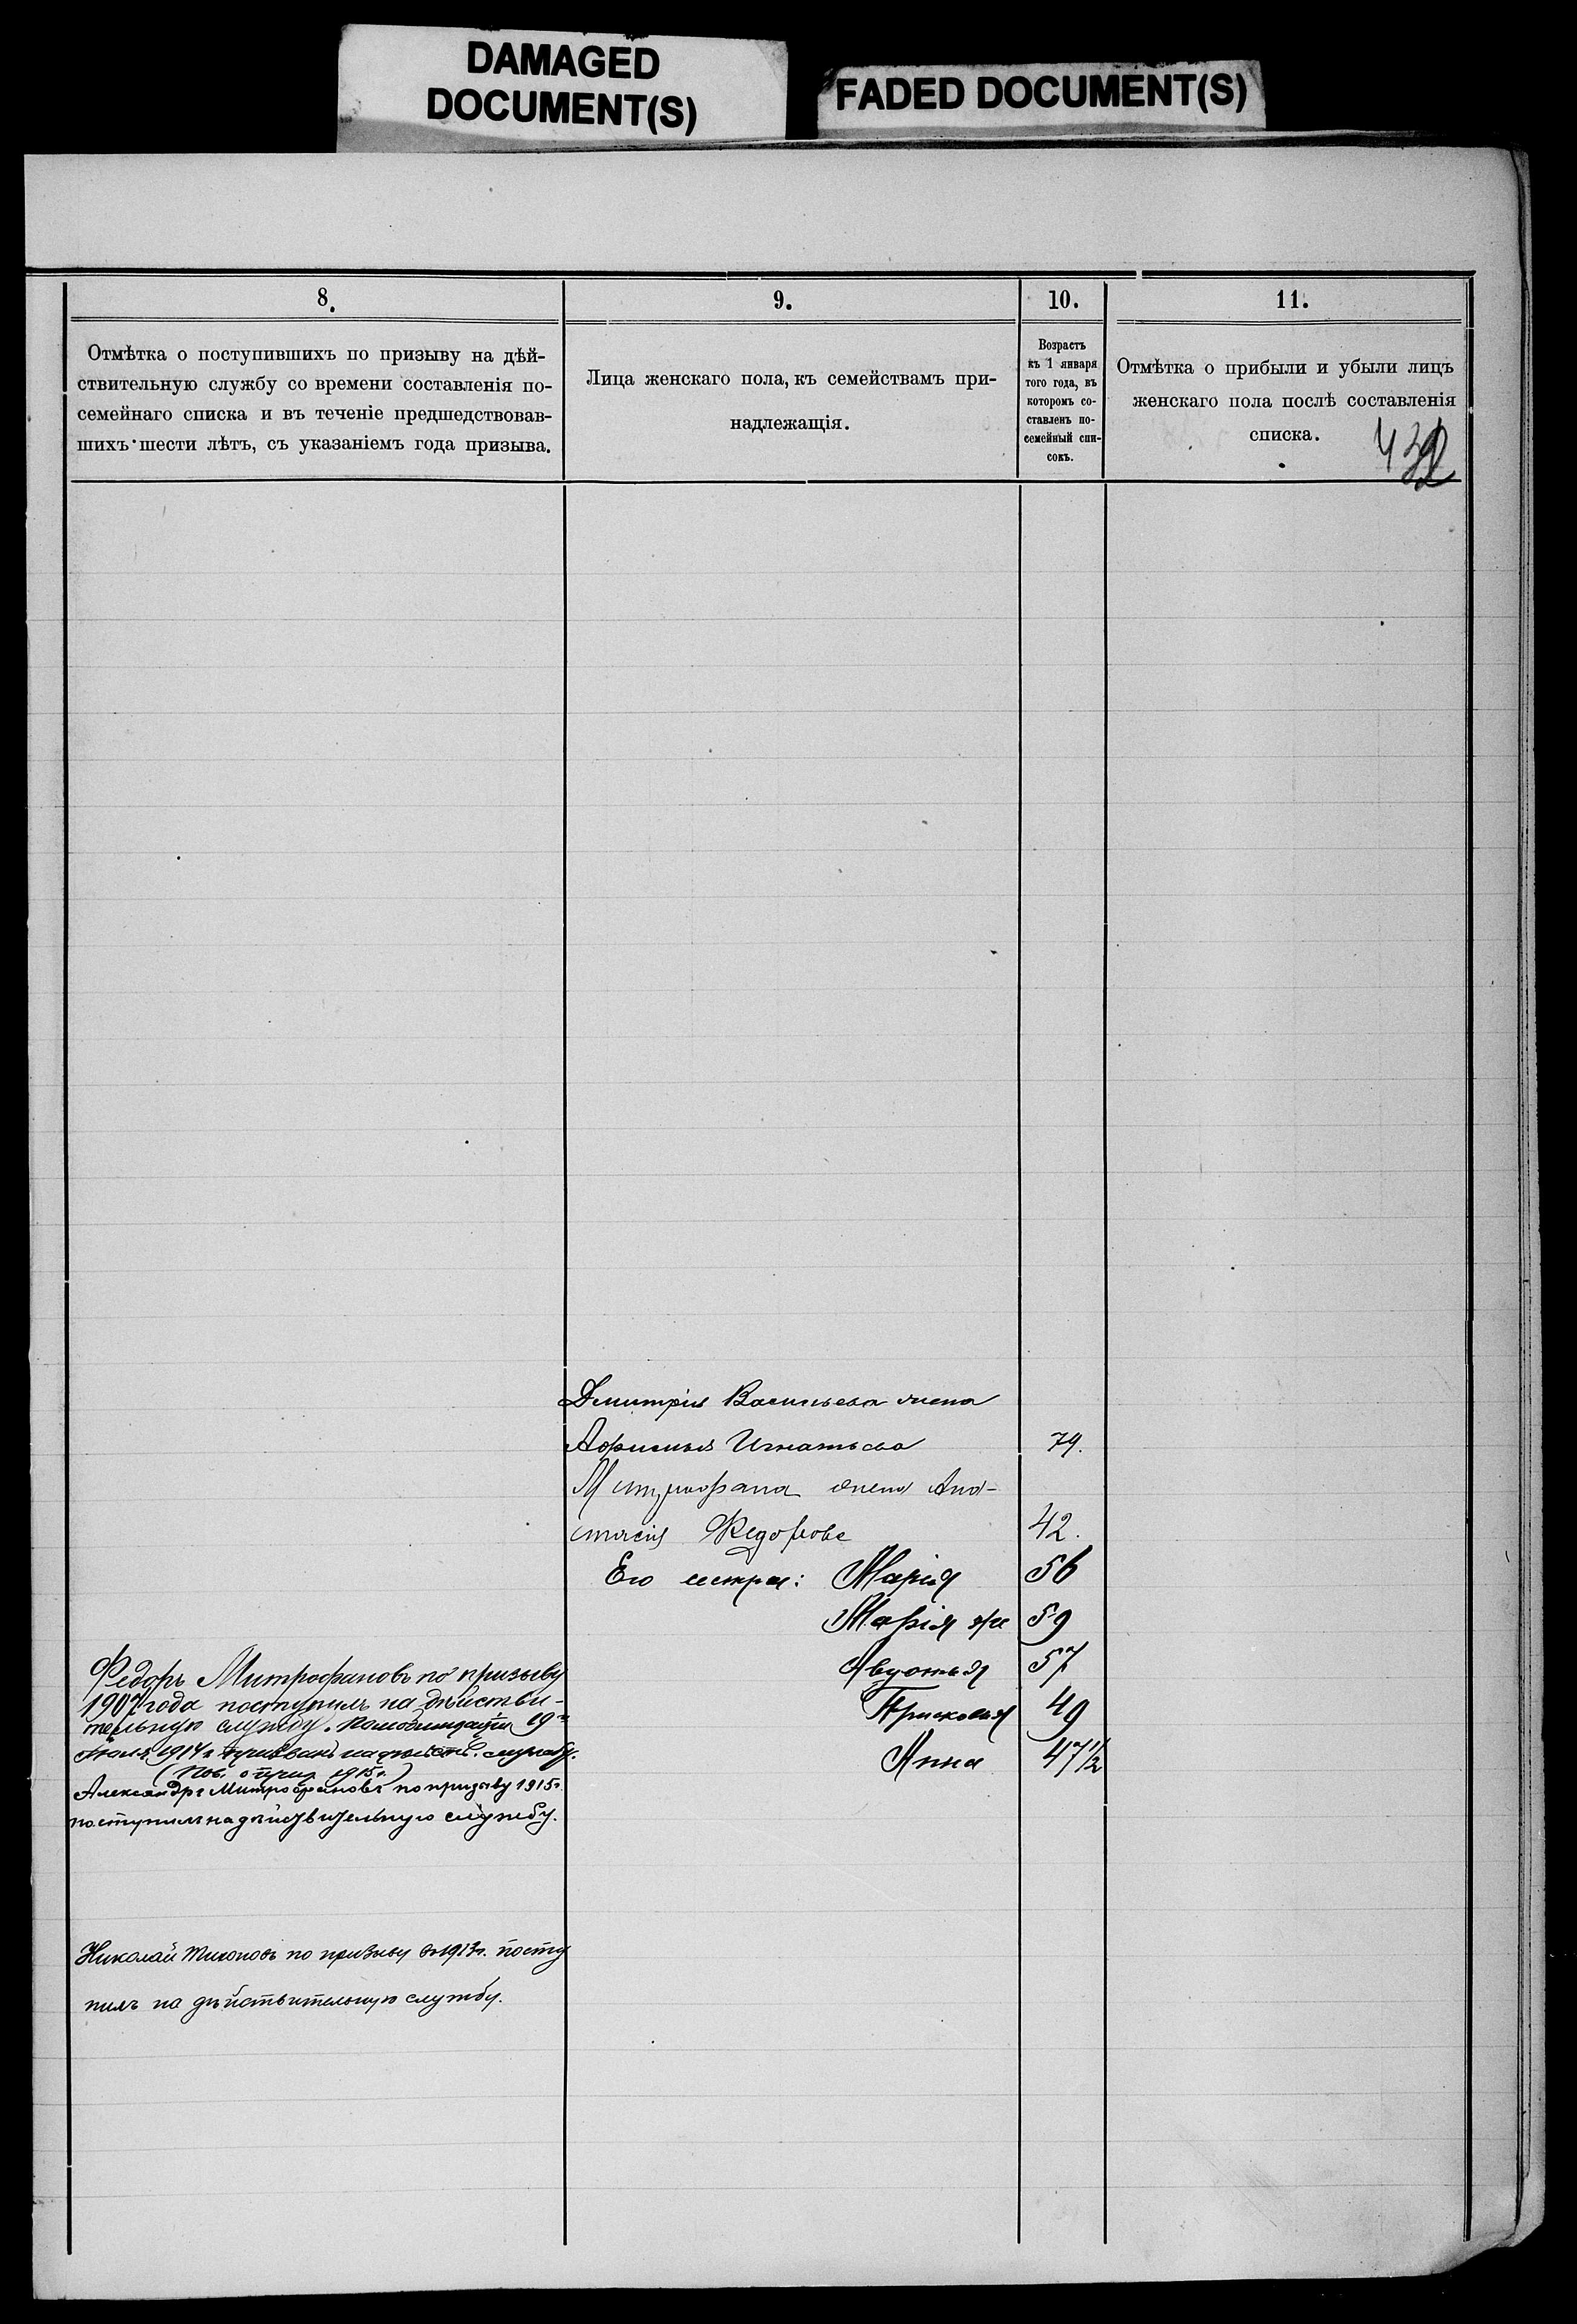 DAMAGED
DOCUMENT(S)
FADED DOCUMENT(S)
8.
Отмѣтка о поступившихъ по призыву на дѣй-
ствительную службу со времени составленія по-
семейнаго списка и въ теченіе предшедствовав-
шихъ шести лѣтъ, съ указаніемъ года призыва.
9.
Лица женскаго пола, къ семействамъ при-
надлежащія.
10.
Возрастъ
къ 1 января
того года, въ
которомъ со-
ставленъ по-
семейный спи-
сокъ.
11.
Отмѣтка о прибыли и убыли лицъ
женскаго пола послѣ составленія
списка.
Дмитрія Васильева жена
Афимья Игнатьева 79.
Митрофана жена Ана-
стасія Федорова 42.
Его сестры: Марія 56
Марія же 59
Авдотья 57
Прасковья 49
Анна 47 1/2
Федоръ Митрофановъ по призыву
1907 года поступилъ на дѣйстви-
тельную службу. По мобилизаціи 19го
Іюля 1914 г. призванъ на дѣйств. службу.
1915 г.)
Александръ Митрофановъ по призыву 1915 г.
поступилъ на дѣйствительную службу.
Николай Тихоновъ по призыву 1913 г. посту
пилъ на дѣйствительную службу.